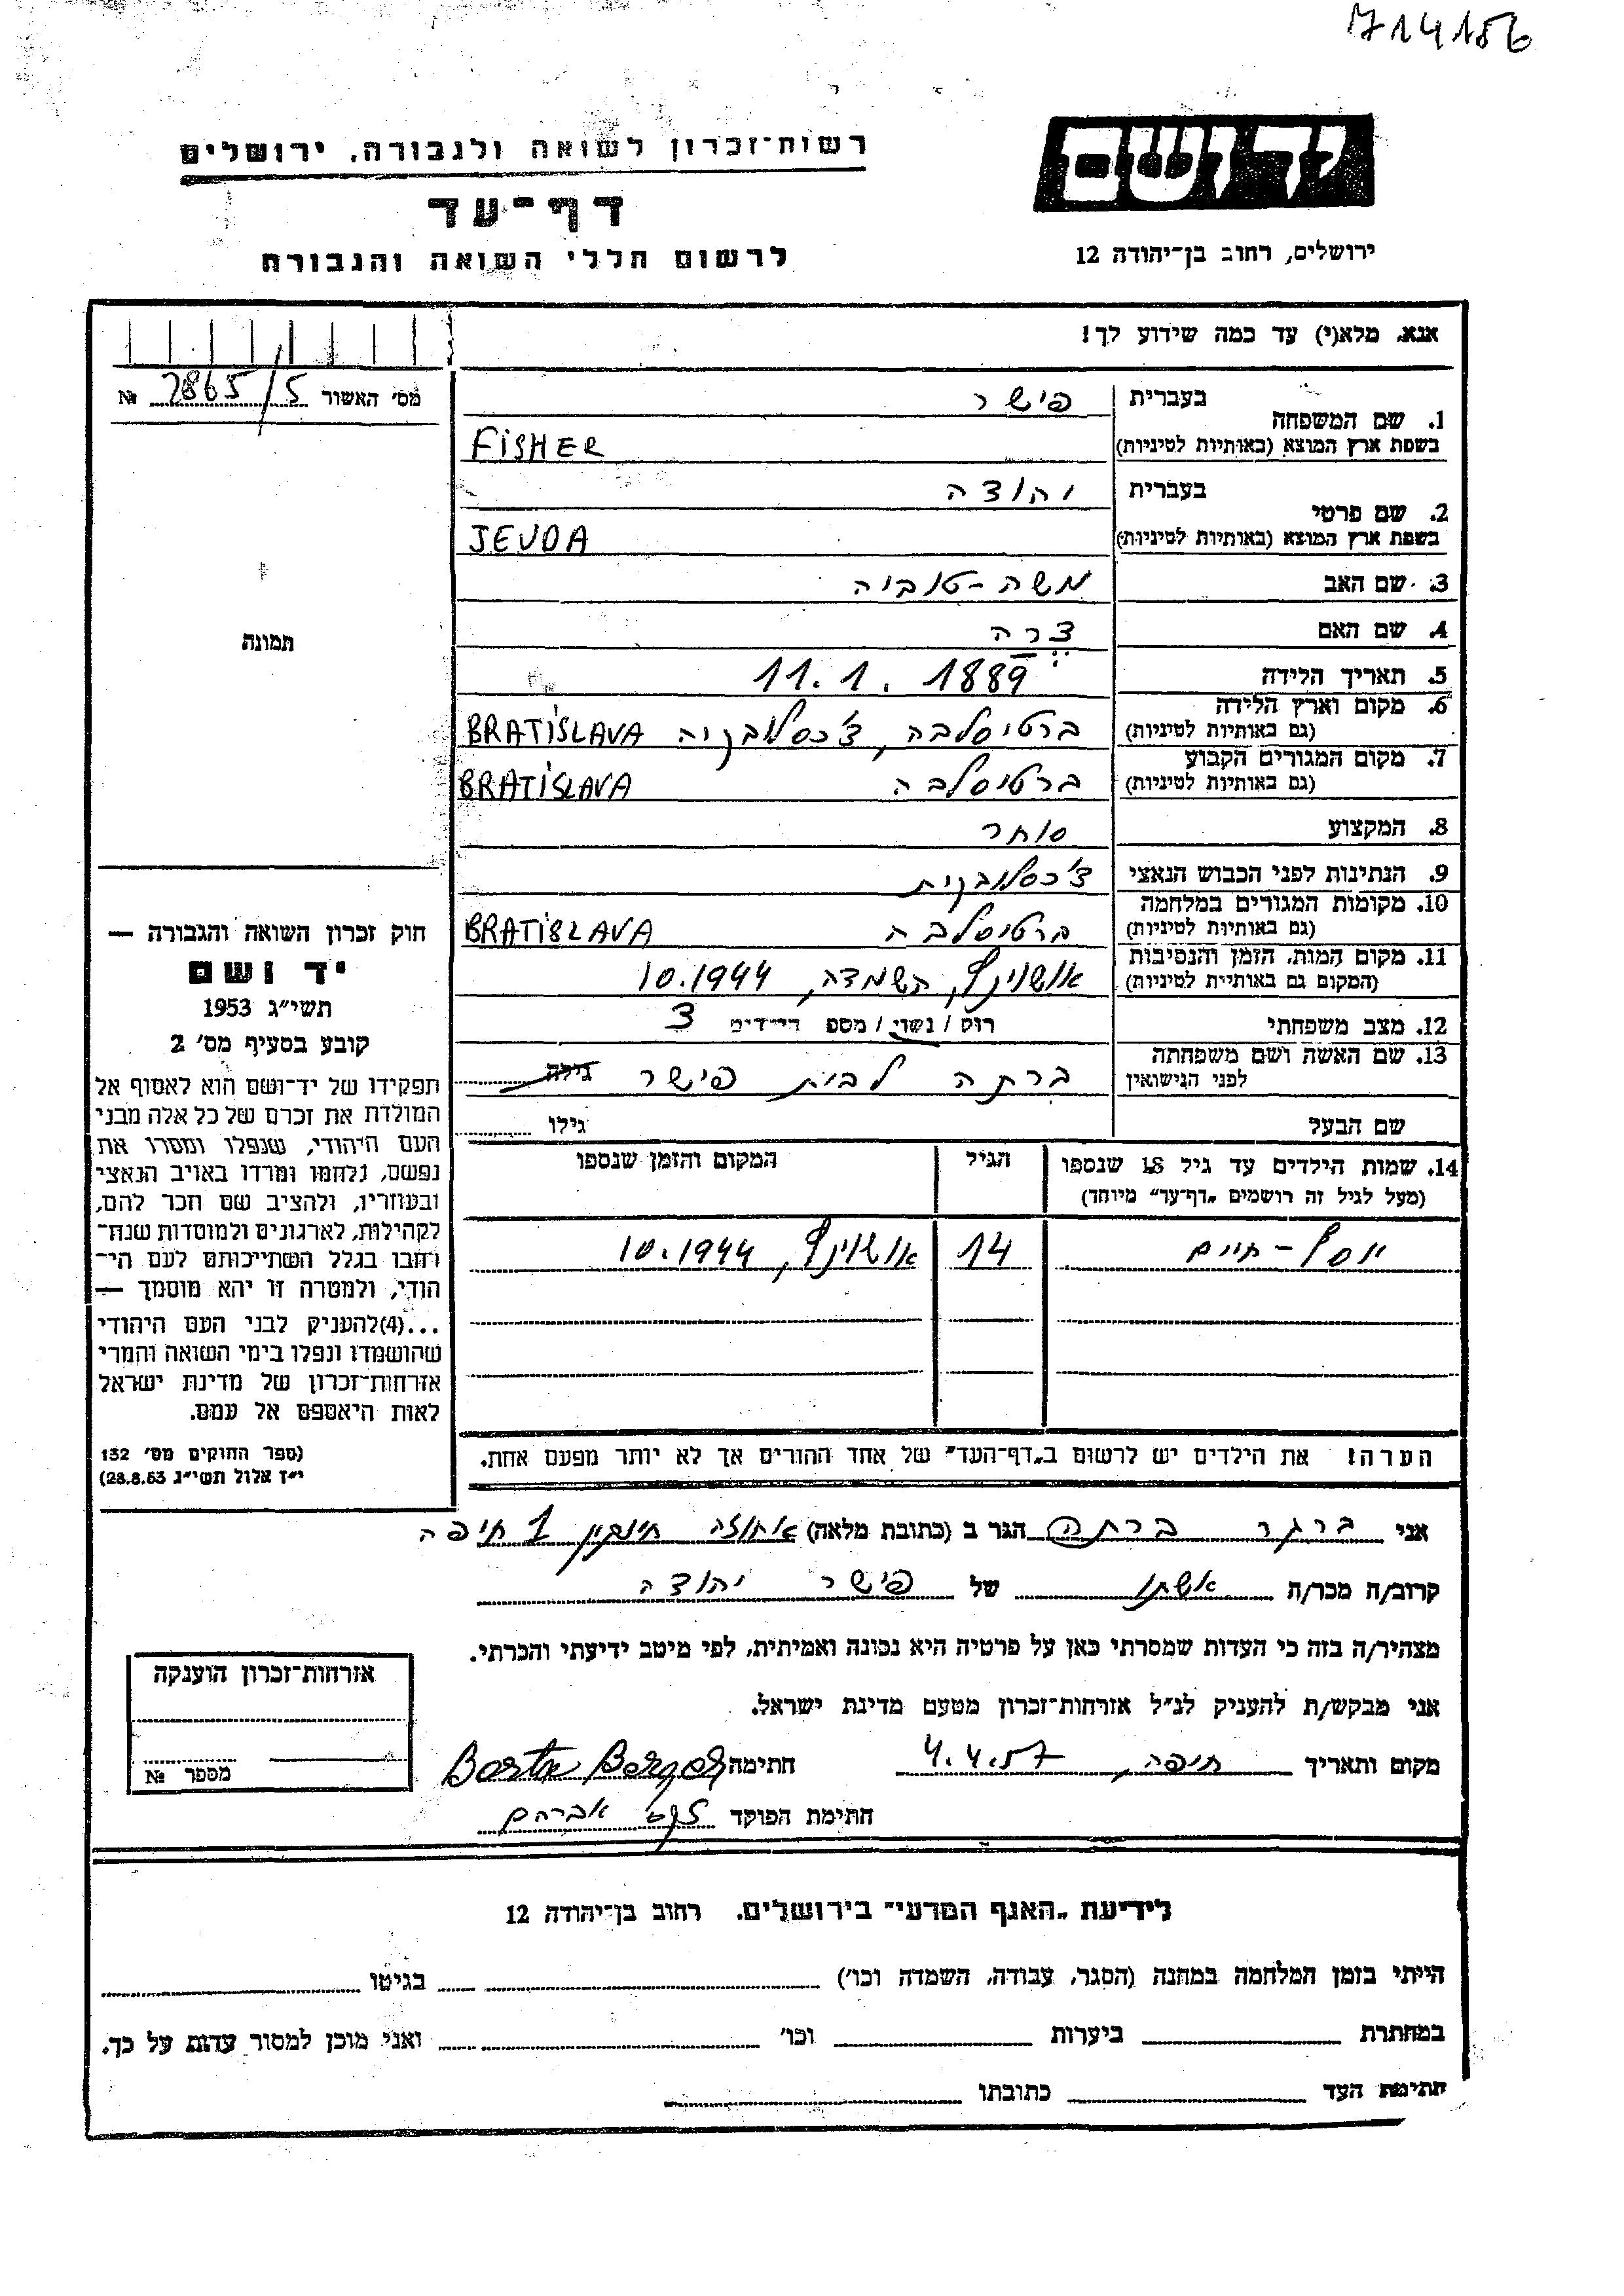 714186
יד ושם
רשות־זכרון לשואה ולגבורה, ירושלים
דף־עד
לרשום חללי השואה והגבורה
ירושלים, רחוב בן־יהודה 12
אנא, מלא(י) עד כמה שידוע לך!
מס' האשור 2865/5 №
1. שם המשפחה בעברית פישר
בשפת ארץ המוצא (באותיות לטיניות) FISHER
2. שם פרטי בעברית יהודה
בשפת ארץ המוצא (באותיות לטיניות) JEUDA
3. שם האב משה-טוביה
4. שם האם צרה
5. תאריך הלידה 11.1.1889
6. מקום וארץ הלידה
(גם באותיות לטיניות) ברטיסלבה, צ'כסלובקיה BRATISLAVA
7. מקום המגורים הקבוע
(גם באותיות לטיניות) ברטיסלבה BRATISLAVA
8. המקצוע סוחר
9. הנתינות לפני הכבוש הנאצי צ'כסלובקית
10. מקומות המגורים במלחמה
(גם באותיות לטיניות) ברטיסלבה BRATISLAVA
11. מקום המות, הזמן והנסיבות
(המקום גם באותיית לטיניות) אושוינץ, השמדה, 10.1944
12. מצב משפחתי רוק / נשוי / מספר הילדים 3
13. שם האשה ושם משפחתה
לפני הנישואין ברתה לבית פישר גילה
שם הבעל גילו
14. שמות הילדים עד גיל 18 שנספו
(מעל לגיל זה רושמים „דף־עד" מיוחד)
הגיל
המקום והזמן שנספו
יוסף-חיים 14 אושוינץ, 10.1944
הערה! את הילדים יש לרשום ב„דף־העד" של אחד ההורים אך לא יותר מפעם אחת.
תמונה
חוק זכרון השואה והגבורה —
יד ושם
תשי"ג 1953
קובע בסעיף מס' 2
תפקידו של יד־ושם הוא לאסוף אל
המולדת את זכרם של כל אלה מבני
העם היהודי, שנפלו ומסרו את
נפשם, נלחמו ומרדו באויב הנאצי
ובעוזריו, ולהציב שם וזכר להם,
לקהילות, לארגונים ולמוסדות שנח־
רבו בגלל השתייכותם לעם הי־
הודי, ולמטרה זו יהא מוסמך —
...(4)להעניק לבני העם היהודי
שהושמדו ונפלו בימי השואה והמרי
אזרחות־זכרון של מדינת ישראל
לאות היאספם אל עמם.
(ספר החוקים מס' 132
י"ז אלול תשי"ג 28.8.53)
אני ברגר ברתה הגר ב (כתובת מלאה) אחוזה 1 חיפה
קרוב/ה מכר/ה אשתו של פישר יהודה
מצהיר/ה בזה כי העדות שמסרתי כאן על פרטיה היא נכונה ואמיתית, לפי מיטב ידיעתי והכרתי.
אני מבקש/ת להעניק לנ"ל אזרחות־זכרון מטעם מדינת ישראל.
מקום ותאריך חיפה, 4.4.57 חתימה Berta Berger
חתימת הפוקד אברהם
אזרחות־זכרון הוענקה
מספר №
לידיעת „האגף המדעי" בירושלים, רחוב בן־יהודה 12
הייתי בזמן המלחמה במחנה (הסגר, עבודה, השמדה וכו') בגיטו
במחתרת ביערות וכו' ואני מוכן למסור עדות על כך.
חתימת העד כתובתו